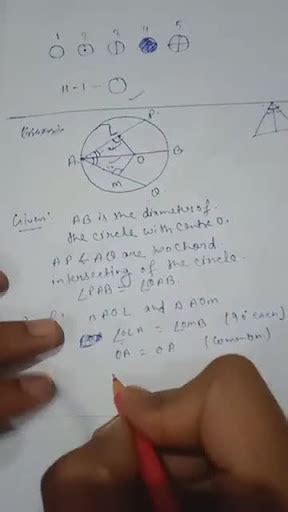 1 2 3 4 5
11-1-
P
L
A O B
M
Q
Given: AB is the diameter of
the circle with centre O.
AP & AQ are two chord
intersecting of the circle.
∠PAB = ∠QAB
Δ AOL and Δ AOM
∠OLA = ∠OMB (90° each)
OA = OA (common)